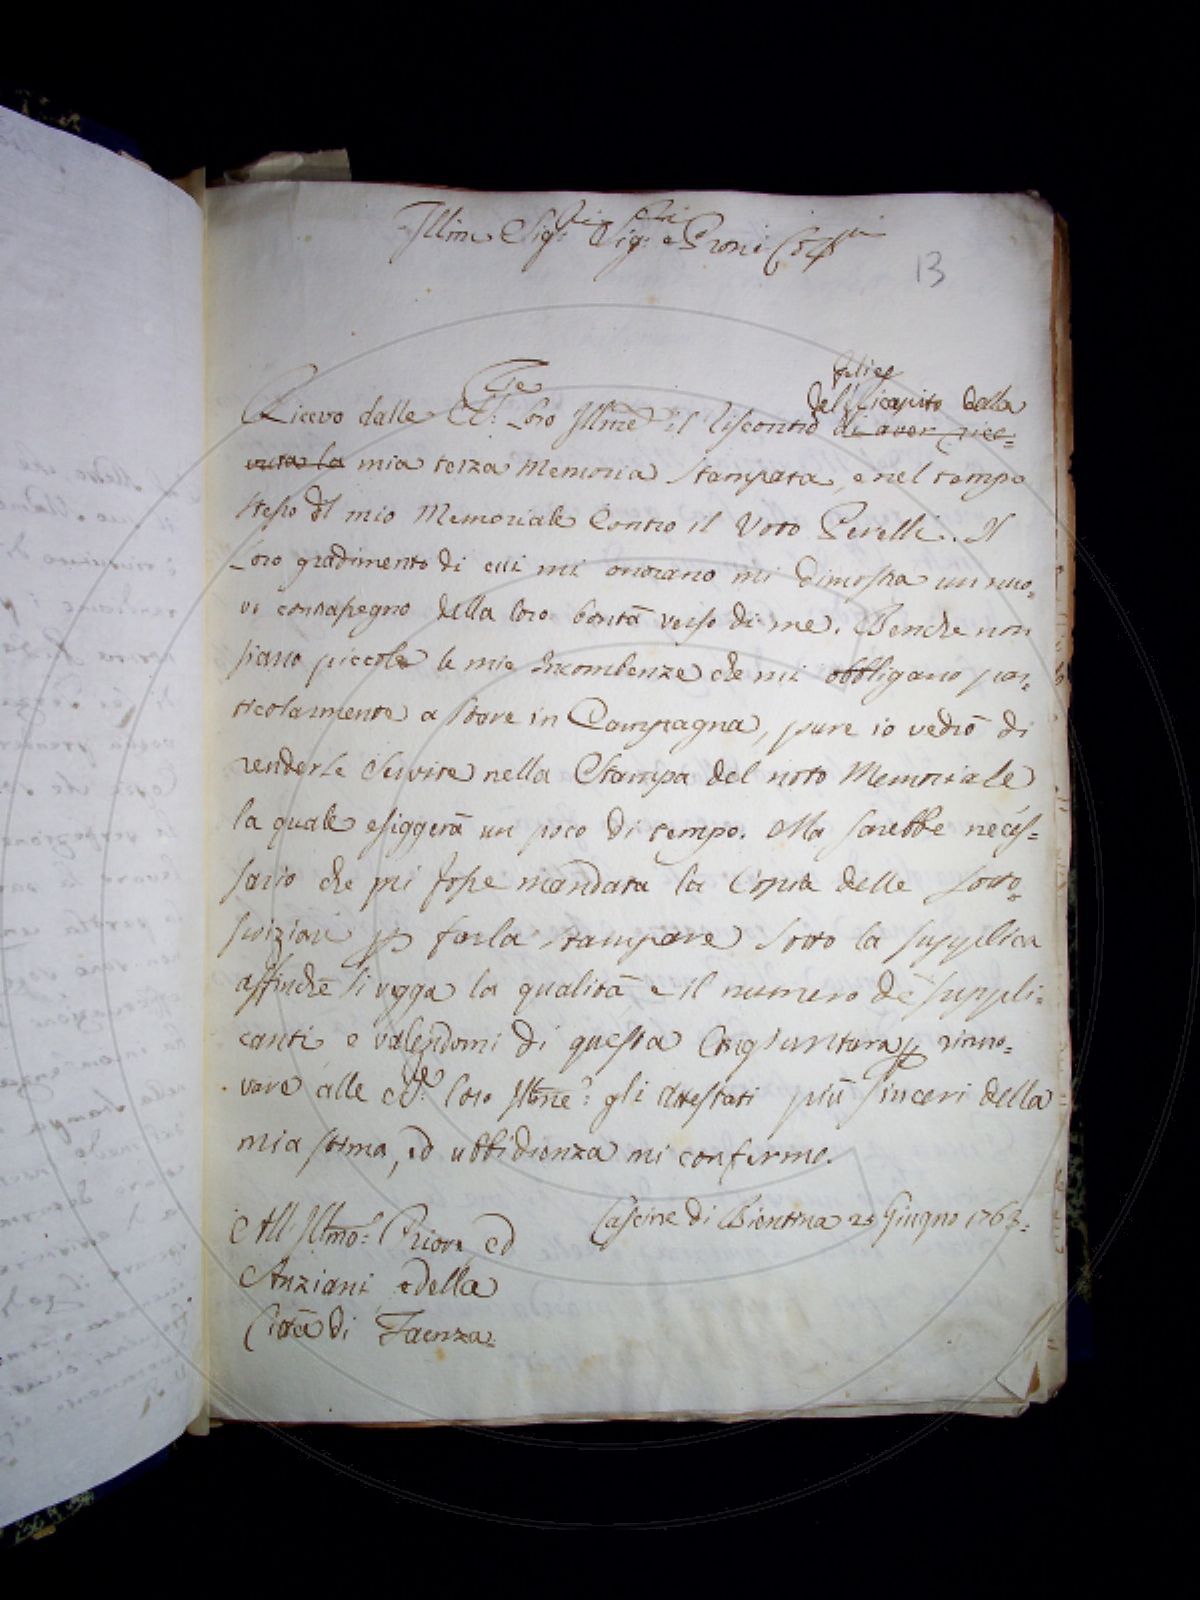 Illmi Sig.ri Sig.ri e Proni Colmi
13
felice
del ricapito della
Ricevo dalle SS.rie Loro Illme il riscontro di aver rice=
vuta la mia terza Memoria stampata, e nel tempo
stesso del mio Memoriale contro il Voto Perelli. Il
Loro gradimento di cui mi onorano mi dimostra un nuo=
vo contrasegno della loro bontà verso di me. Benche non
siano piccole le mie Incombenze che mi obbligano par=
ticolarmente a stare in Campagna, pure io vedrò di
renderle servite nella Stampa del noto Memoriale
la quale esiggerà un poco di tempo. Ma sarebbe neces=
sario che mi fosse mandata la Copia delle sotto=
scrizioni p farla stampare sotto la supplica
affinche si vegga la qualità e il numero de suppli=
canti e valendomi di questa Congiuntura p rinno=
vare alle SS.rie loro Illme gli attestati più sinceri della
mia stima, ed ubbidienza mi confermo.
Cascine di Bientina 25 Giugno 1763.
All Illmo Priore ed
Anziani della
Città di Faenza